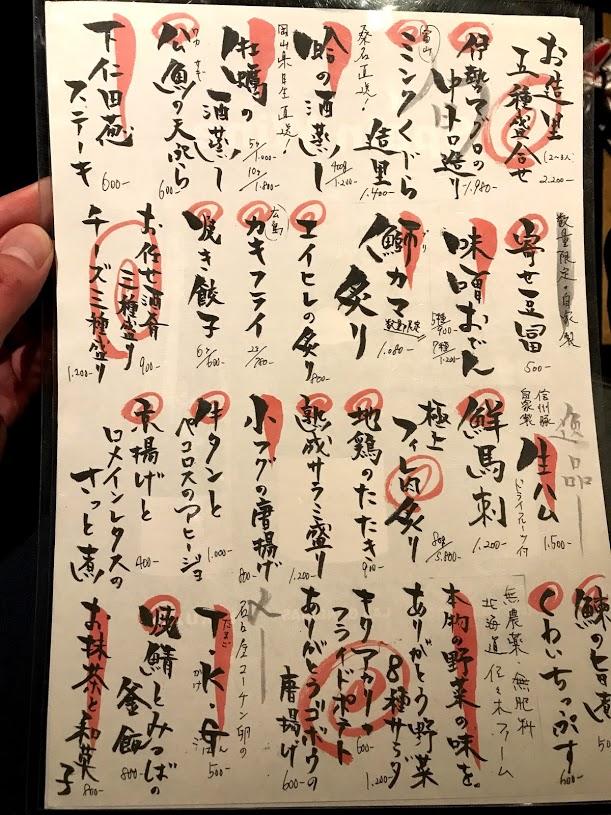 お造里
五種盛合せ
(2〜3人)
2.200-
伊勢マグロの
中トロ造り
1.980-
富山
ミンククジラ
造里
1.400-
桑名直送!
蛤の酒蒸し
400g/1.200-
岡山県日生直送!
牡蠣の
酒蒸し
5ヶ/1.000-
10ヶ/1.800-
ワカサギ
公魚の天ぷら
600-
下仁田葱
ステーキ
600-
数量限定・自家製
寄せ豆冨
500-
味噌おでん
5種/900-
7種/1.200-
ブリ
鰤カマ
炙り
数量限定
1.080-
エイヒレの炙り
800-
広島
カキフライ
2ヶ/780-
焼き餃子
6ケ/600-
お任せ酒肴
三種盛り
900-
チーズ三種盛り
1.200-
逸品
信州豚
自家製
生ハム
ドライフルーツ付
1.500-
鮮馬刺
1.200-
極上
フィレ肉炙り
80g/5.800-
地鶏のたたき
900-
熟成サラミ盛り
1.200-
小フグの唐揚げ
800-
牛タンと
ペコロスのアヒージョ
1.000-
京揚げと
ロメインレタスの
さっと煮
400-
旨煮
くわいちっぷす
600-
無農薬・無肥料
北海道 佐々木ファーム
本物の野菜の味を。
ありがとう野菜
8種サラダ
1.200-
キタアカリの
フライドポテト
600-
ありがとうゴボウの
唐揚げ
600-
〆
名古屋コーチン卵の
T.K.G
たまご
かけ
500-
焼鯖とみつばの
釜飯
800-
お抹茶と和菓子
800-